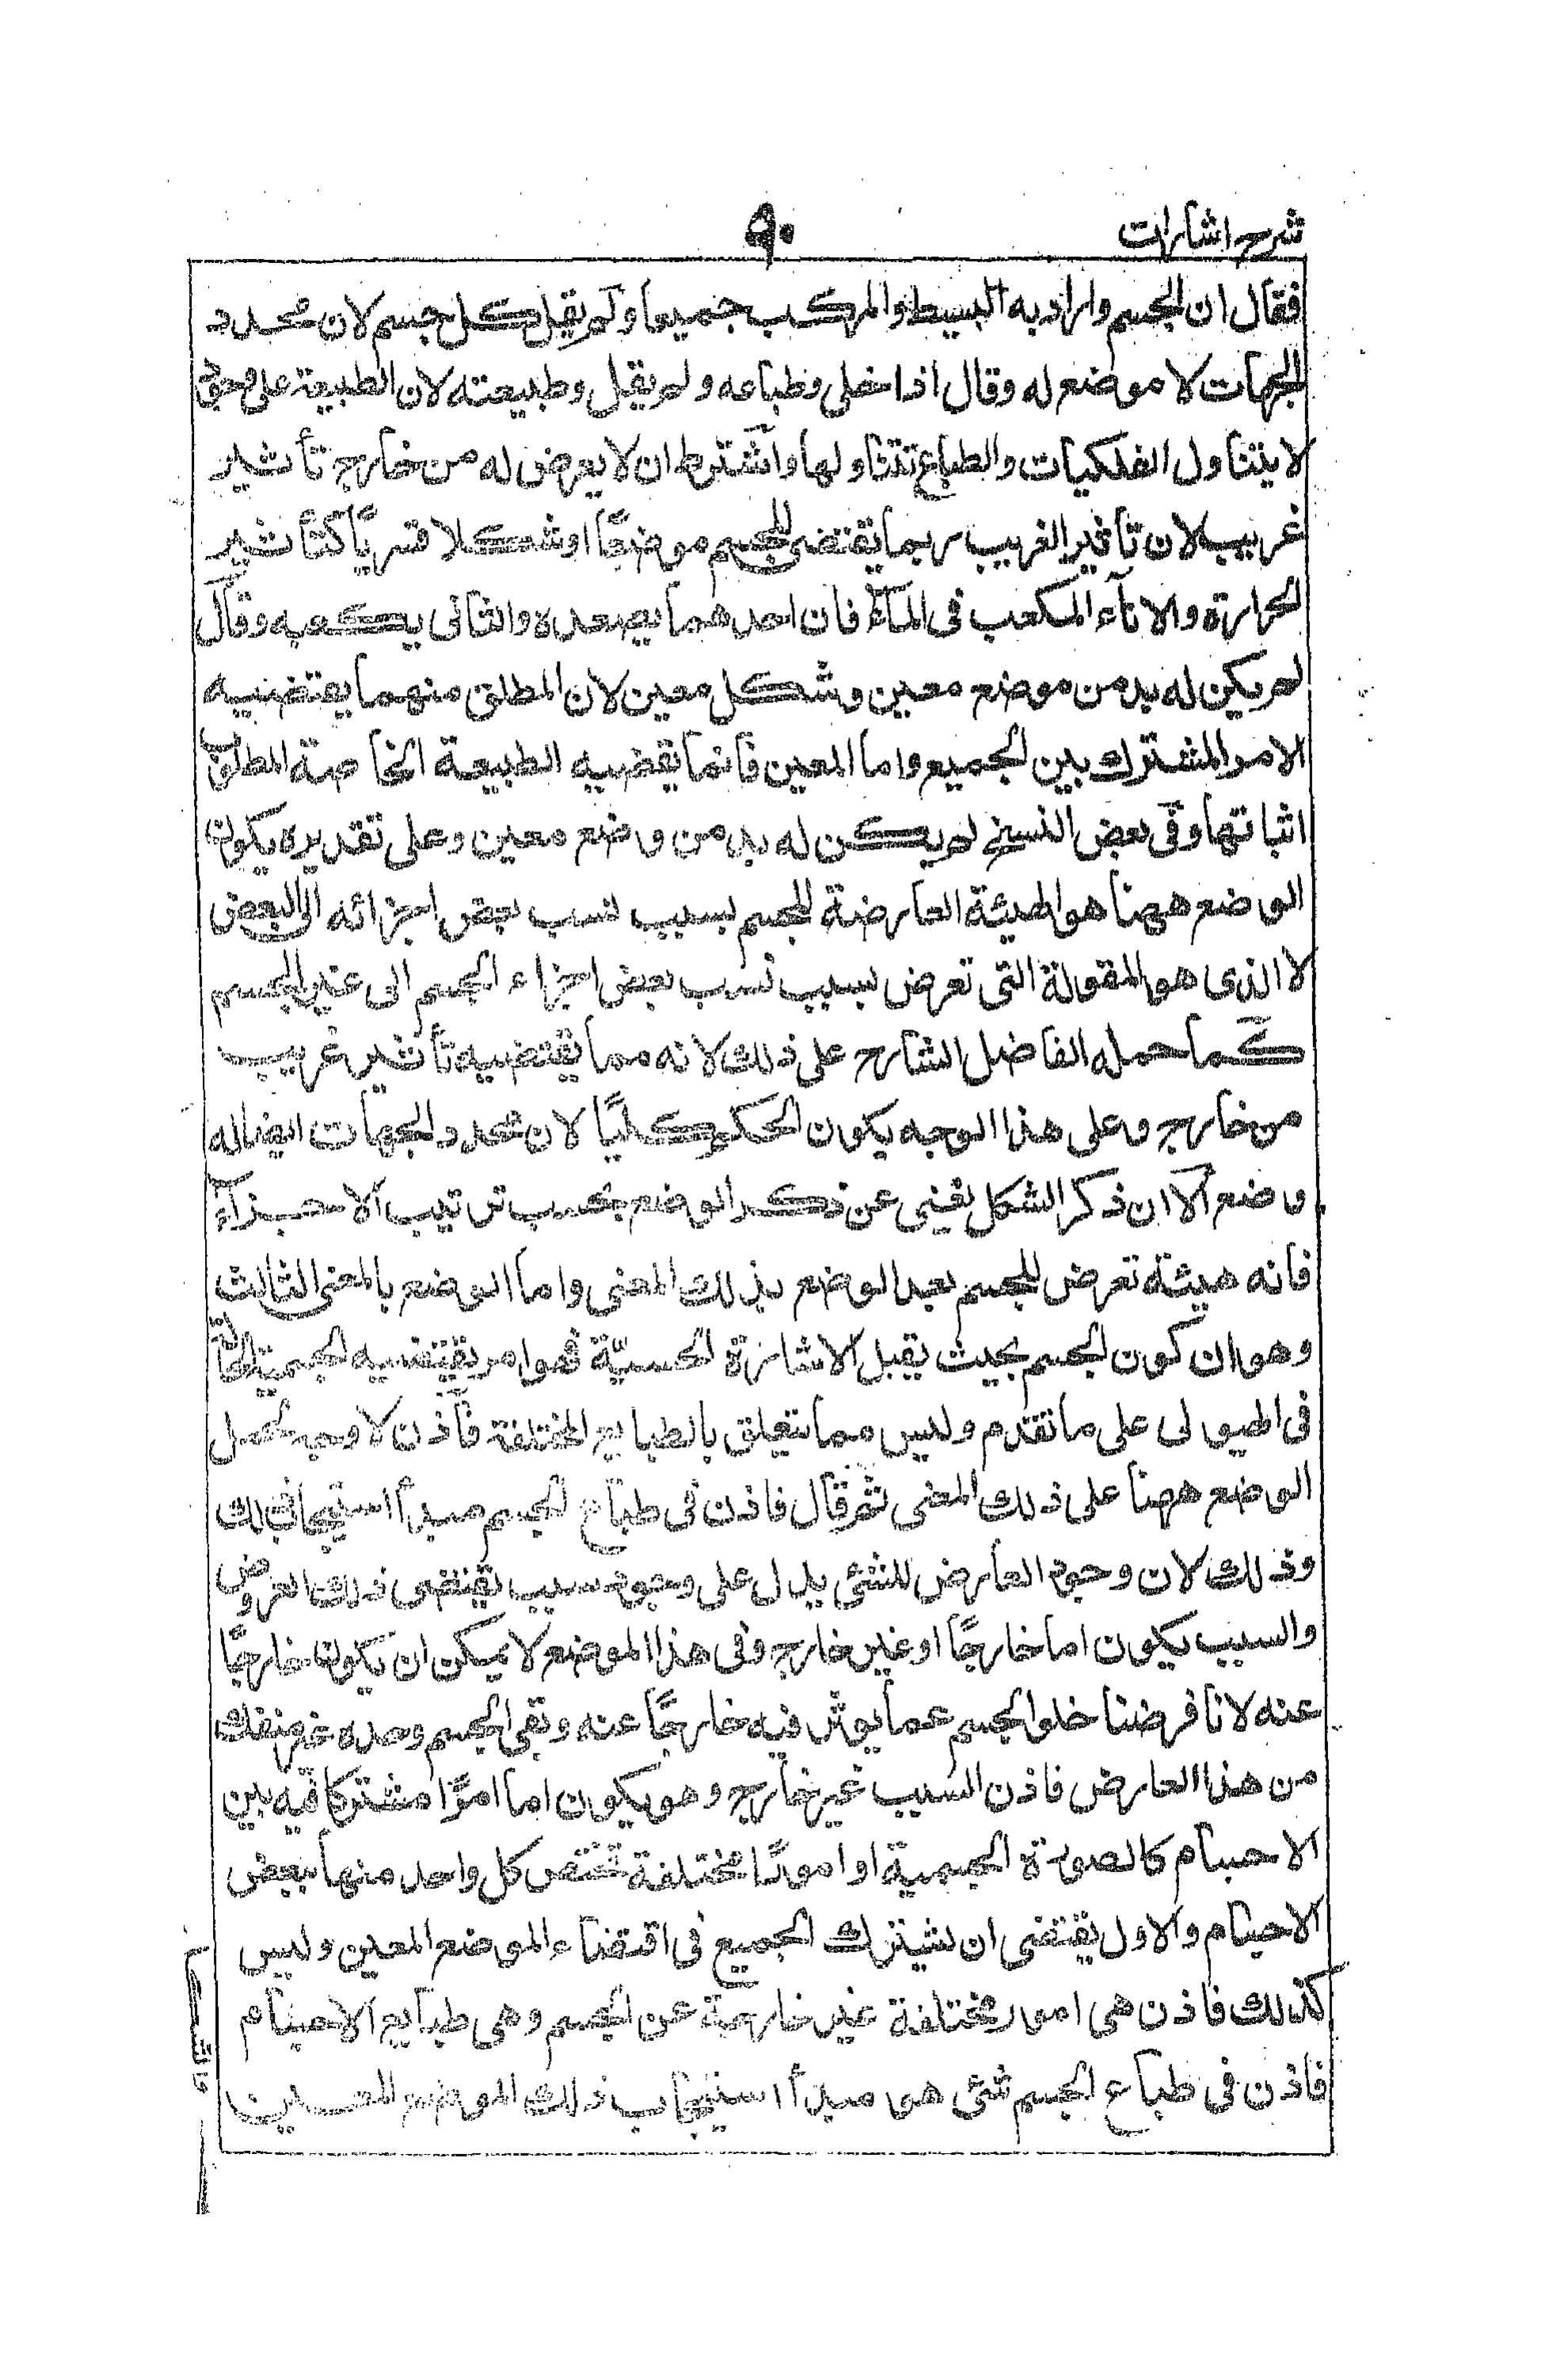 شرح اشارات
٩٠
فقال ان الجسم واراد به البسيط والمركب جميعا ولم يقل كل جسم لان محدد
الجهات لا موضع له وقال اذا خلى وطباعه ولم يقل وطبيعته لان الطبيعة على
لا يتناول الفلكيات والطباع تتناولها واشترط ان لا يعرض له من خارج تأثير
غريب لان تأثير الغريب ربما يقتضى للجسم موضعًا او شكلا قسريًا كتأثير
الحرارة والاناء المكعب فى الماء فان احدهما يصعده والثانى يكعبه وقال
لم يكن له بد من موضع معين وشكل معين لان المطلق منهما يقتضيه
الامر المشترك بين الجميع واما المعين فانما يقضيه الطبيعة الخاصة المطلوب
اثباتها وفى بعض النسخ لم يكن له بد من وضع معين وعلى تقديره يكون
الوضع ههنا هو الهيئة العارضة للجسم بسبب نسب بعض اجزائه الى البعض
لا الذى هو المقولة التى تعرض بسبب نسب بعض اجزاء الجسم الى غير الجسم
كما حمله الفاضل الشارح على ذلك لانه مما يقتضيه تأثير غريب
من خارج وعلى هذا الوجه يكون الحكم كليًا لان محدد الجهات ايضا له
وضع الا ان ذكر الشكل يغنى عن ذكر الوضع بحسب ترتيب الاجزآء
فانه هيئة تعرض للجسم بعد الوضع بذلك المعنى واما الوضع بالمعنى الثالث
وهو ان كون الجسم بحيث يقبل الاشارة الحسيّة فهو امر يقتضيه الجسمية الحالّة
فى الهيولى على ما تقدم وليس مما يتعلق بالطبايع المختلفة فاذن لا وجه لحمل
الوضع ههنا على ذلك المعنى ثم قال فاذن فى طباع الجسم مبدأ استيجاب ذلك
وذلك لان وجود العارض للشئ يدل على وجود سبب يقتضى ذلك العروض
والسبب يكون اما خارجًا او غير خارج وفى هذا الموضع لا يمكن ان يكون خارجًا
عنه لانا فرضنا خلو الجسم عما يوثر فيه خارجًا عنه وبقى الجسم وحده غير منفك
من هذا العارض فاذن السبب غير خارج وهو يكون اما امرًا مشتركا فيه بين
الاجسام كالصورة الجسمية او امورًا مختلفة تختص كل واحد منها ببعض
الاجسام والاول يقتضى ان يشترك الجميع فى اقتضاء الموضع المعين وليس
كذلك فاذن هى امور مختلفة غير خارجة عن الجسم وهى طبايع الاجسام
فاذن فى طباع الجسم شئ هو مبدأ استيجاب ذلك الموضع المعين